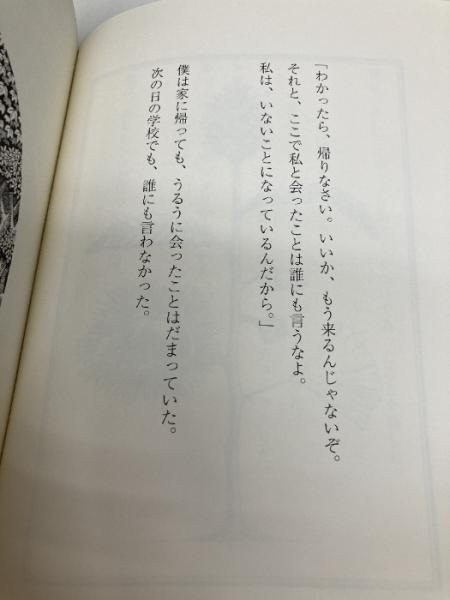 「わかったら、帰りなさい。いいか、もう来るんじゃないぞ。
それと、ここで私と会ったことは誰にも言うなよ。
私は、いないことになっているんだから。」
僕は家に帰っても、うるうに会ったことはだまっていた。
次の日の学校でも、誰にも言わなかった。